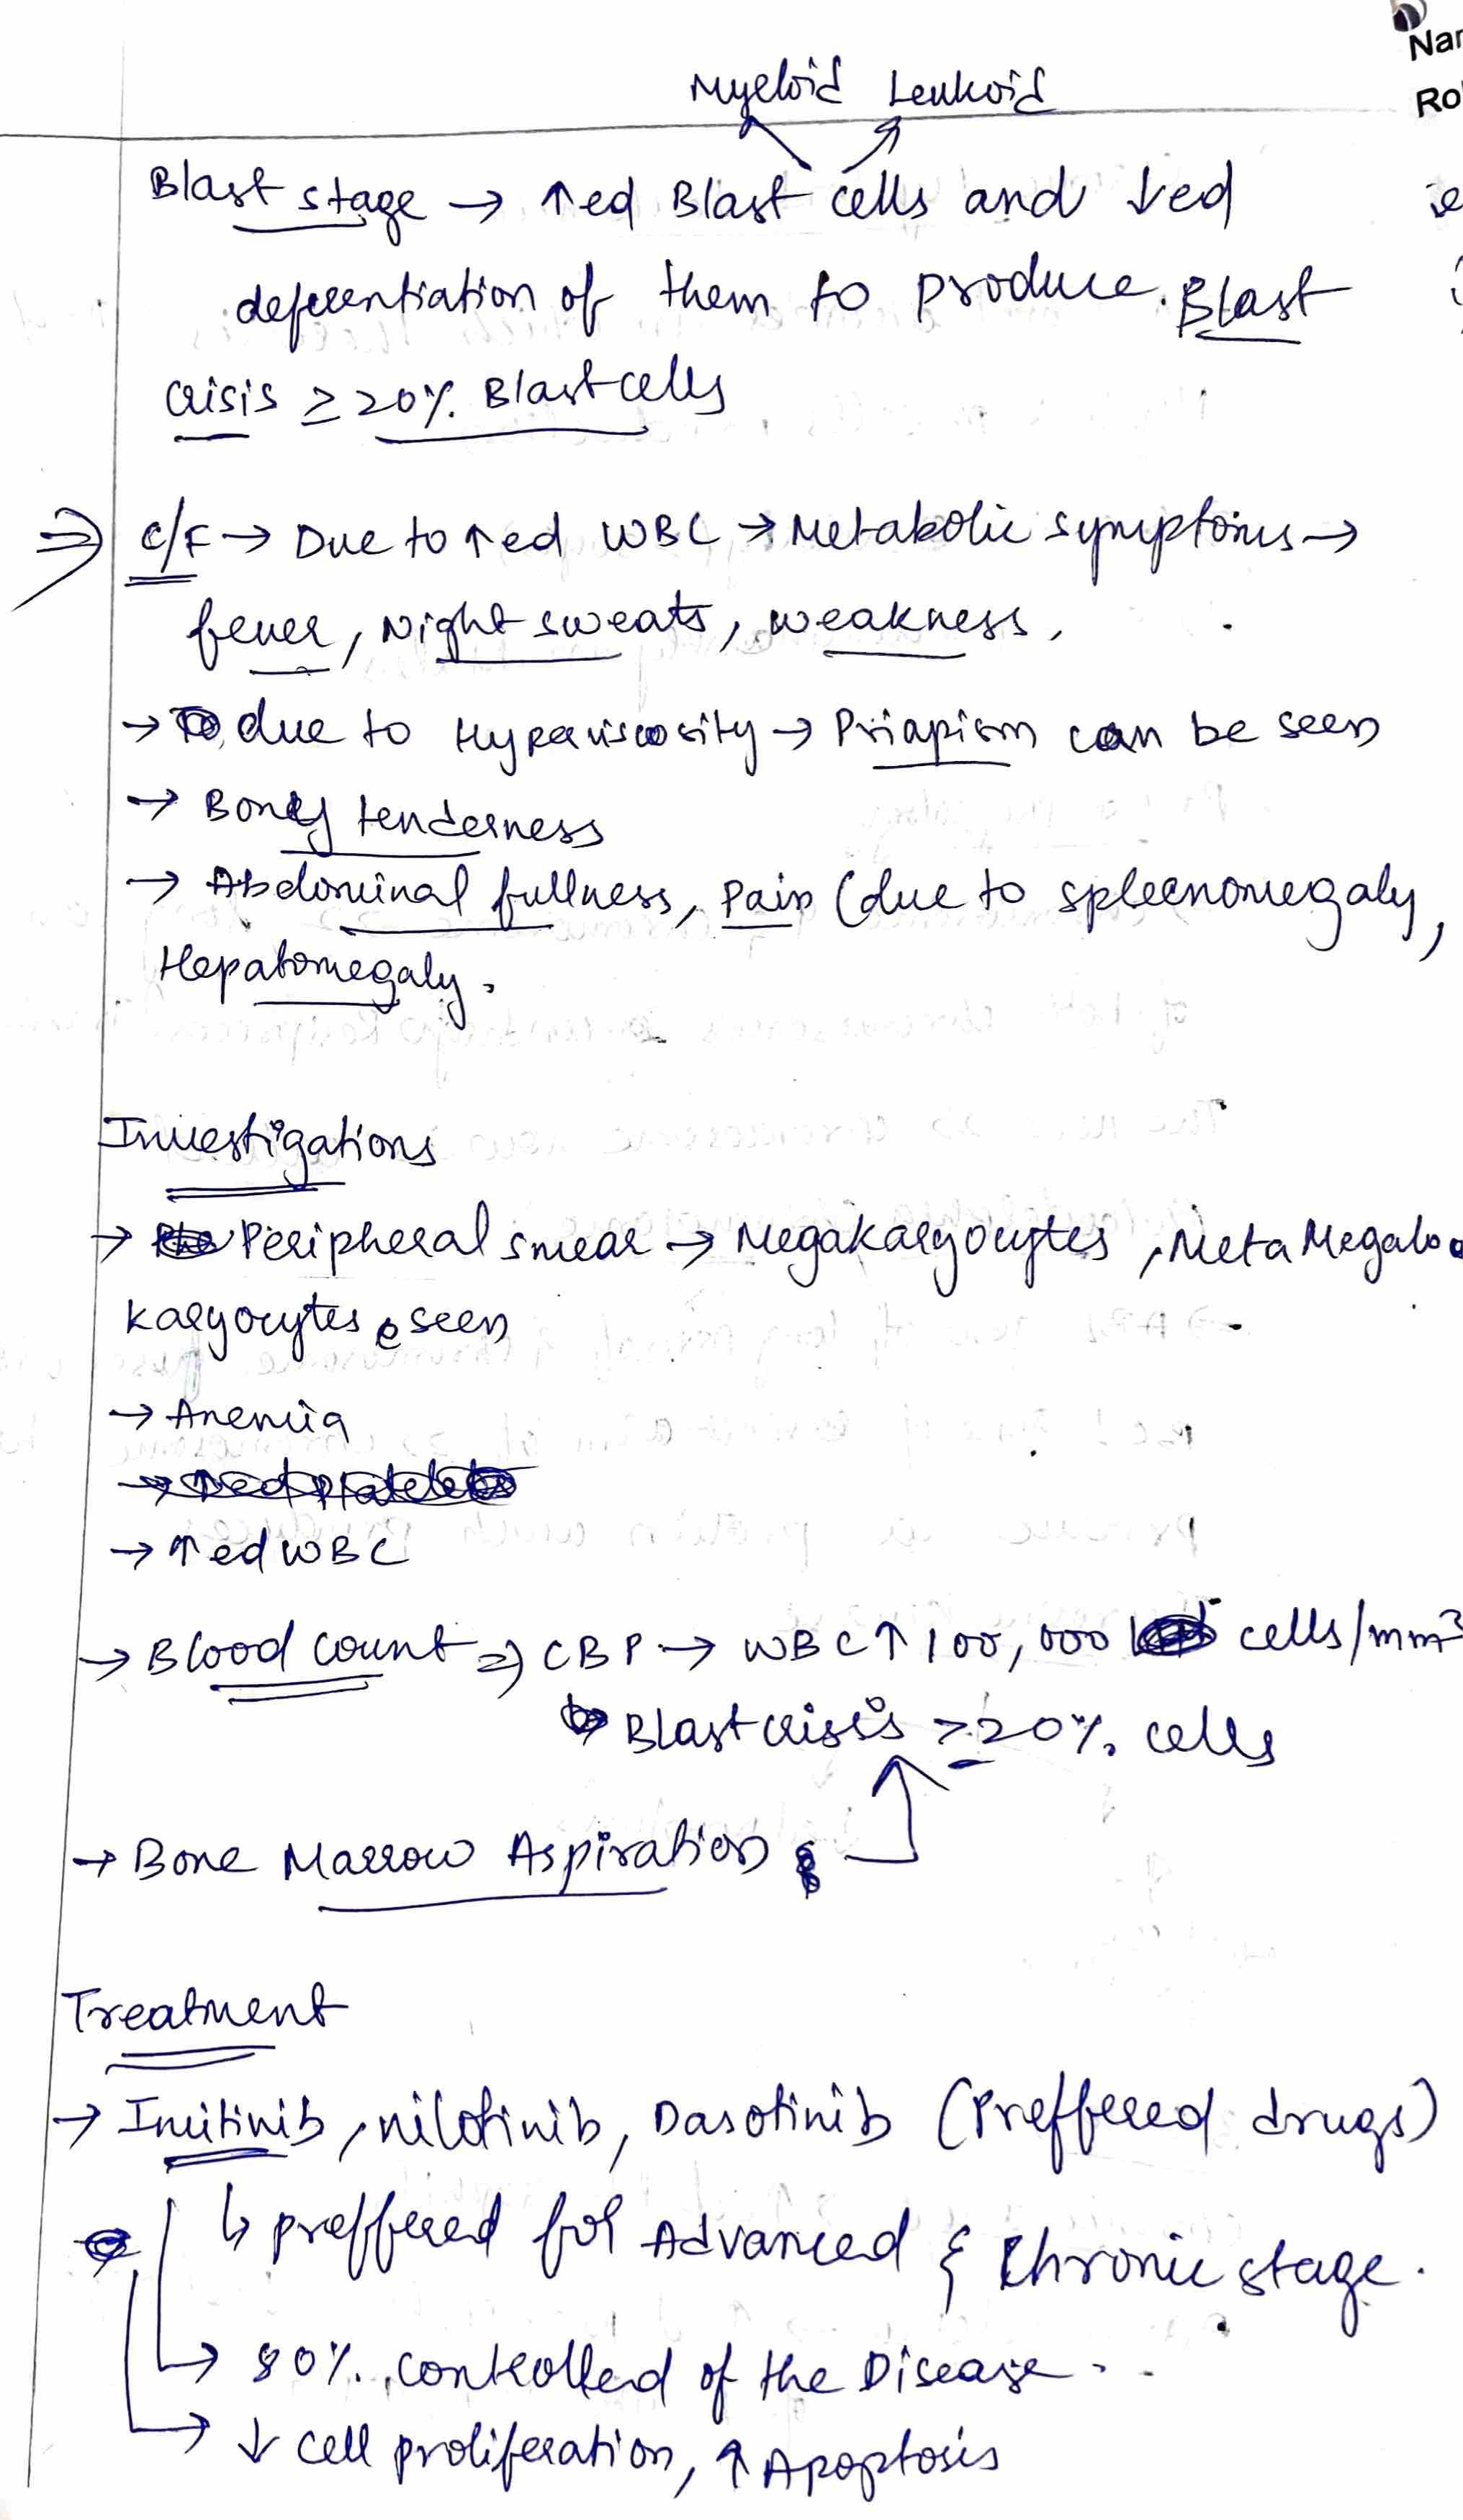 Nar
Ro
Myeloid Leukoid
Blast stage → ↑ed Blast cells and ↓ed
deferentiation of them to produce. Blast
crisis ≥20% Blast cells
⇒ C/F → Due to ↑ed WBC → Metabolic symptoms →
fever, Night sweats, weakness,
→ due to Hyperviscosity → Priapism can be seen
→ Boney tenderness
→ Abdominal fullness, Pain (due to spleenomegaly,
Hepatomegaly.
Investigations
→ Peripheral smear → Megakaryocytes, Meta Megalo
karyocytes seen
→ Anemia
→ ↑ed WBC
→ Blood count ⇒ CBP → WBC ↑ 100,000 cells/mm³
↳ Blast crisis ≥20% cells
→ Bone Marrow Aspiration
Treatment
→ Imitinib, nilotinib, Dasotinib (Preffered drugs)
↳ preffered for Advanced & Chronic stage.
→ 80% controlled of the Disease.
→ ↓ cell proliferation, ↑ Apoptosis